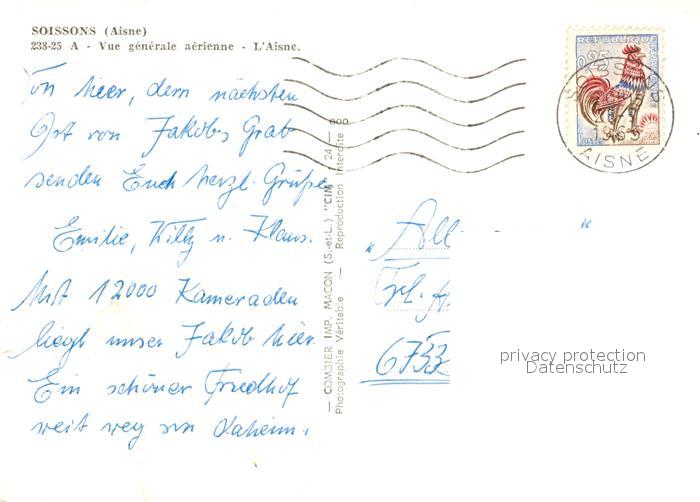 SOISSONS (Aisne)
238-25 A - Vue générale aérienne - L'Aisne.
Von hier, dem nächsten
Ort von Jakobs Grab
senden Euch herzl. Grüße
Emilie, Willy u. Klaus.
Mit 12000 Kameraden
liegt unser Jakob hier.
Ein schöner Friedhof
weit weg von daheim.
— COMBIER IMP. MACON (S.-et-L.) "CIM"
Photographie Véritable — Reproduction Interdite
REPUBLIQUE FRANÇAISE
0,25
AISNE
„ All "
Frl.
6733
privacy protection
Datenschutz